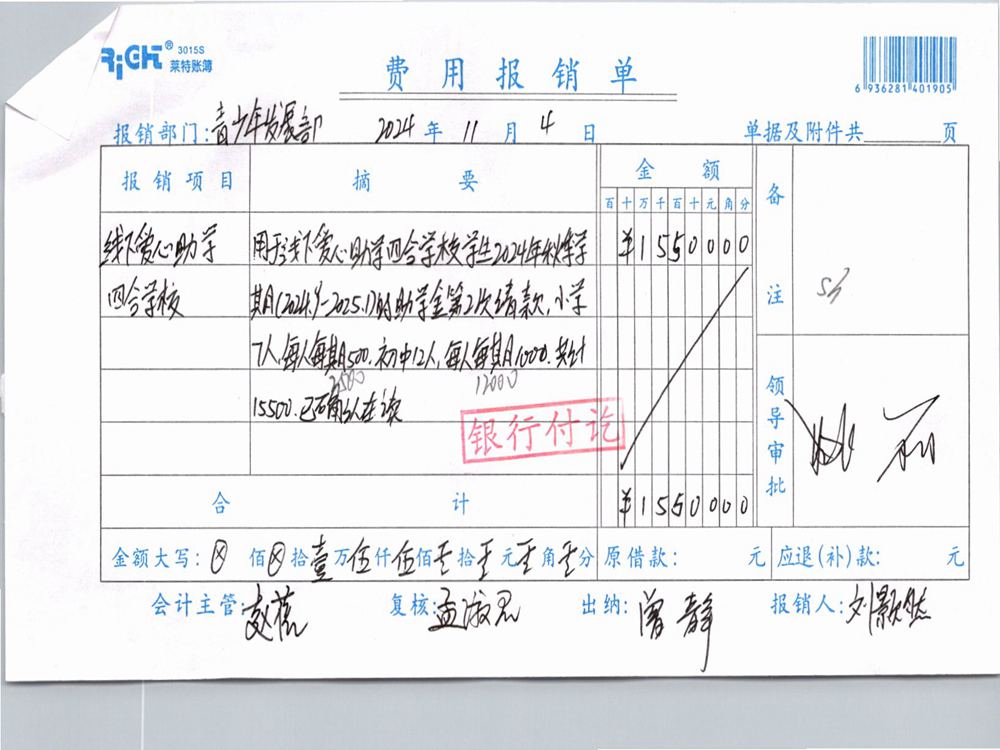 RIGHT® 3015S
莱特账簿
费用报销单
6 936281 401905
报销部门:青少年发展部 2024 年 11 月 4 日 单据及附件共 页
报销项目 摘要 金额 备注
百十万千百十元角分
线下爱心助学 用于线下爱心助学四合学校学生2024年秋季学 ¥1550000
四合学校 期(2024.9-2025.1)的助学金第2次请款,小学
7人,每人每期500.初中12人,每人每期1000.共计
3500 12000
15500.已确认在读
银行付讫
领导审批
合计 ¥1550000
金额大写:⊗佰⊗拾壹万伍仟伍佰零拾零元零角零分 原借款: 元 应退(补)款: 元
会计主管: 复核:孟淑君 出纳:曾静 报销人:刘歆然